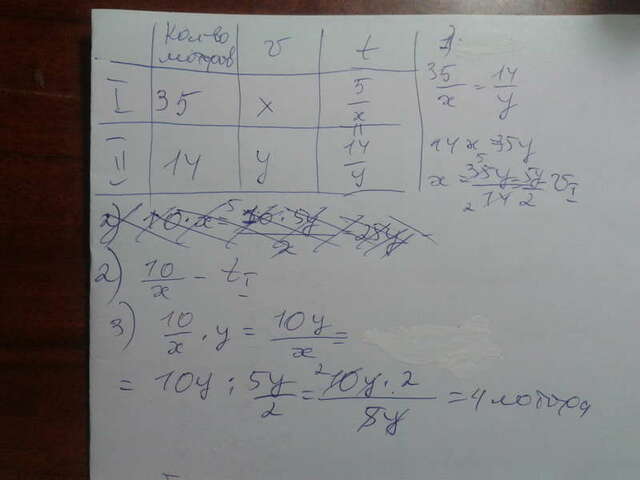 Кол-во
мотров v t
I 35 x 5/x
II 14 y 14/y
1)
35/x = 14/y
14x = 35y
x = 35y/14 = 5y/2 v I
2) 10/x - t I
3) 10/x · y = 10y/x =
= 10y : 5y/2 = 10y · 2/5y = 4 мотра